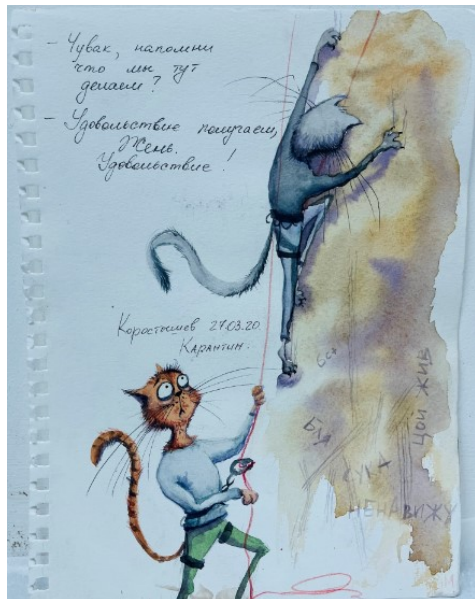 - Чувак, напомни
что мы тут
делаем?
- Удовольствие получаем,
Жень.
Удовольствие!
Коростышев 27.03.20.
Карантин.
ЦОЙ ЖИВ
СУКА
НЕНАВИЖУ